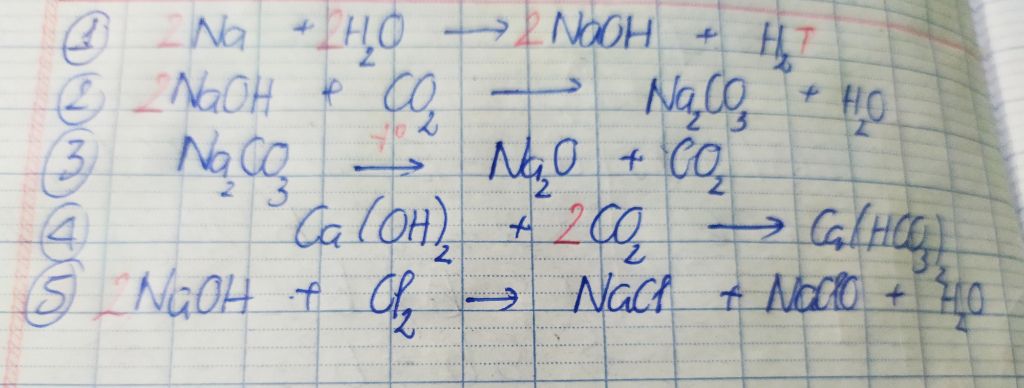 ① 2Na + 2H₂O → 2NaOH + H₂↑
② 2NaOH + CO₂ → Na₂CO₃ + H₂O
③ Na₂CO₃ t° → Na₂O + CO₂
④ Ca(OH)₂ + 2CO₂ → Ca(HCO₃)₂
⑤ 2NaOH + Cl₂ → NaCl + NaClO + H₂O